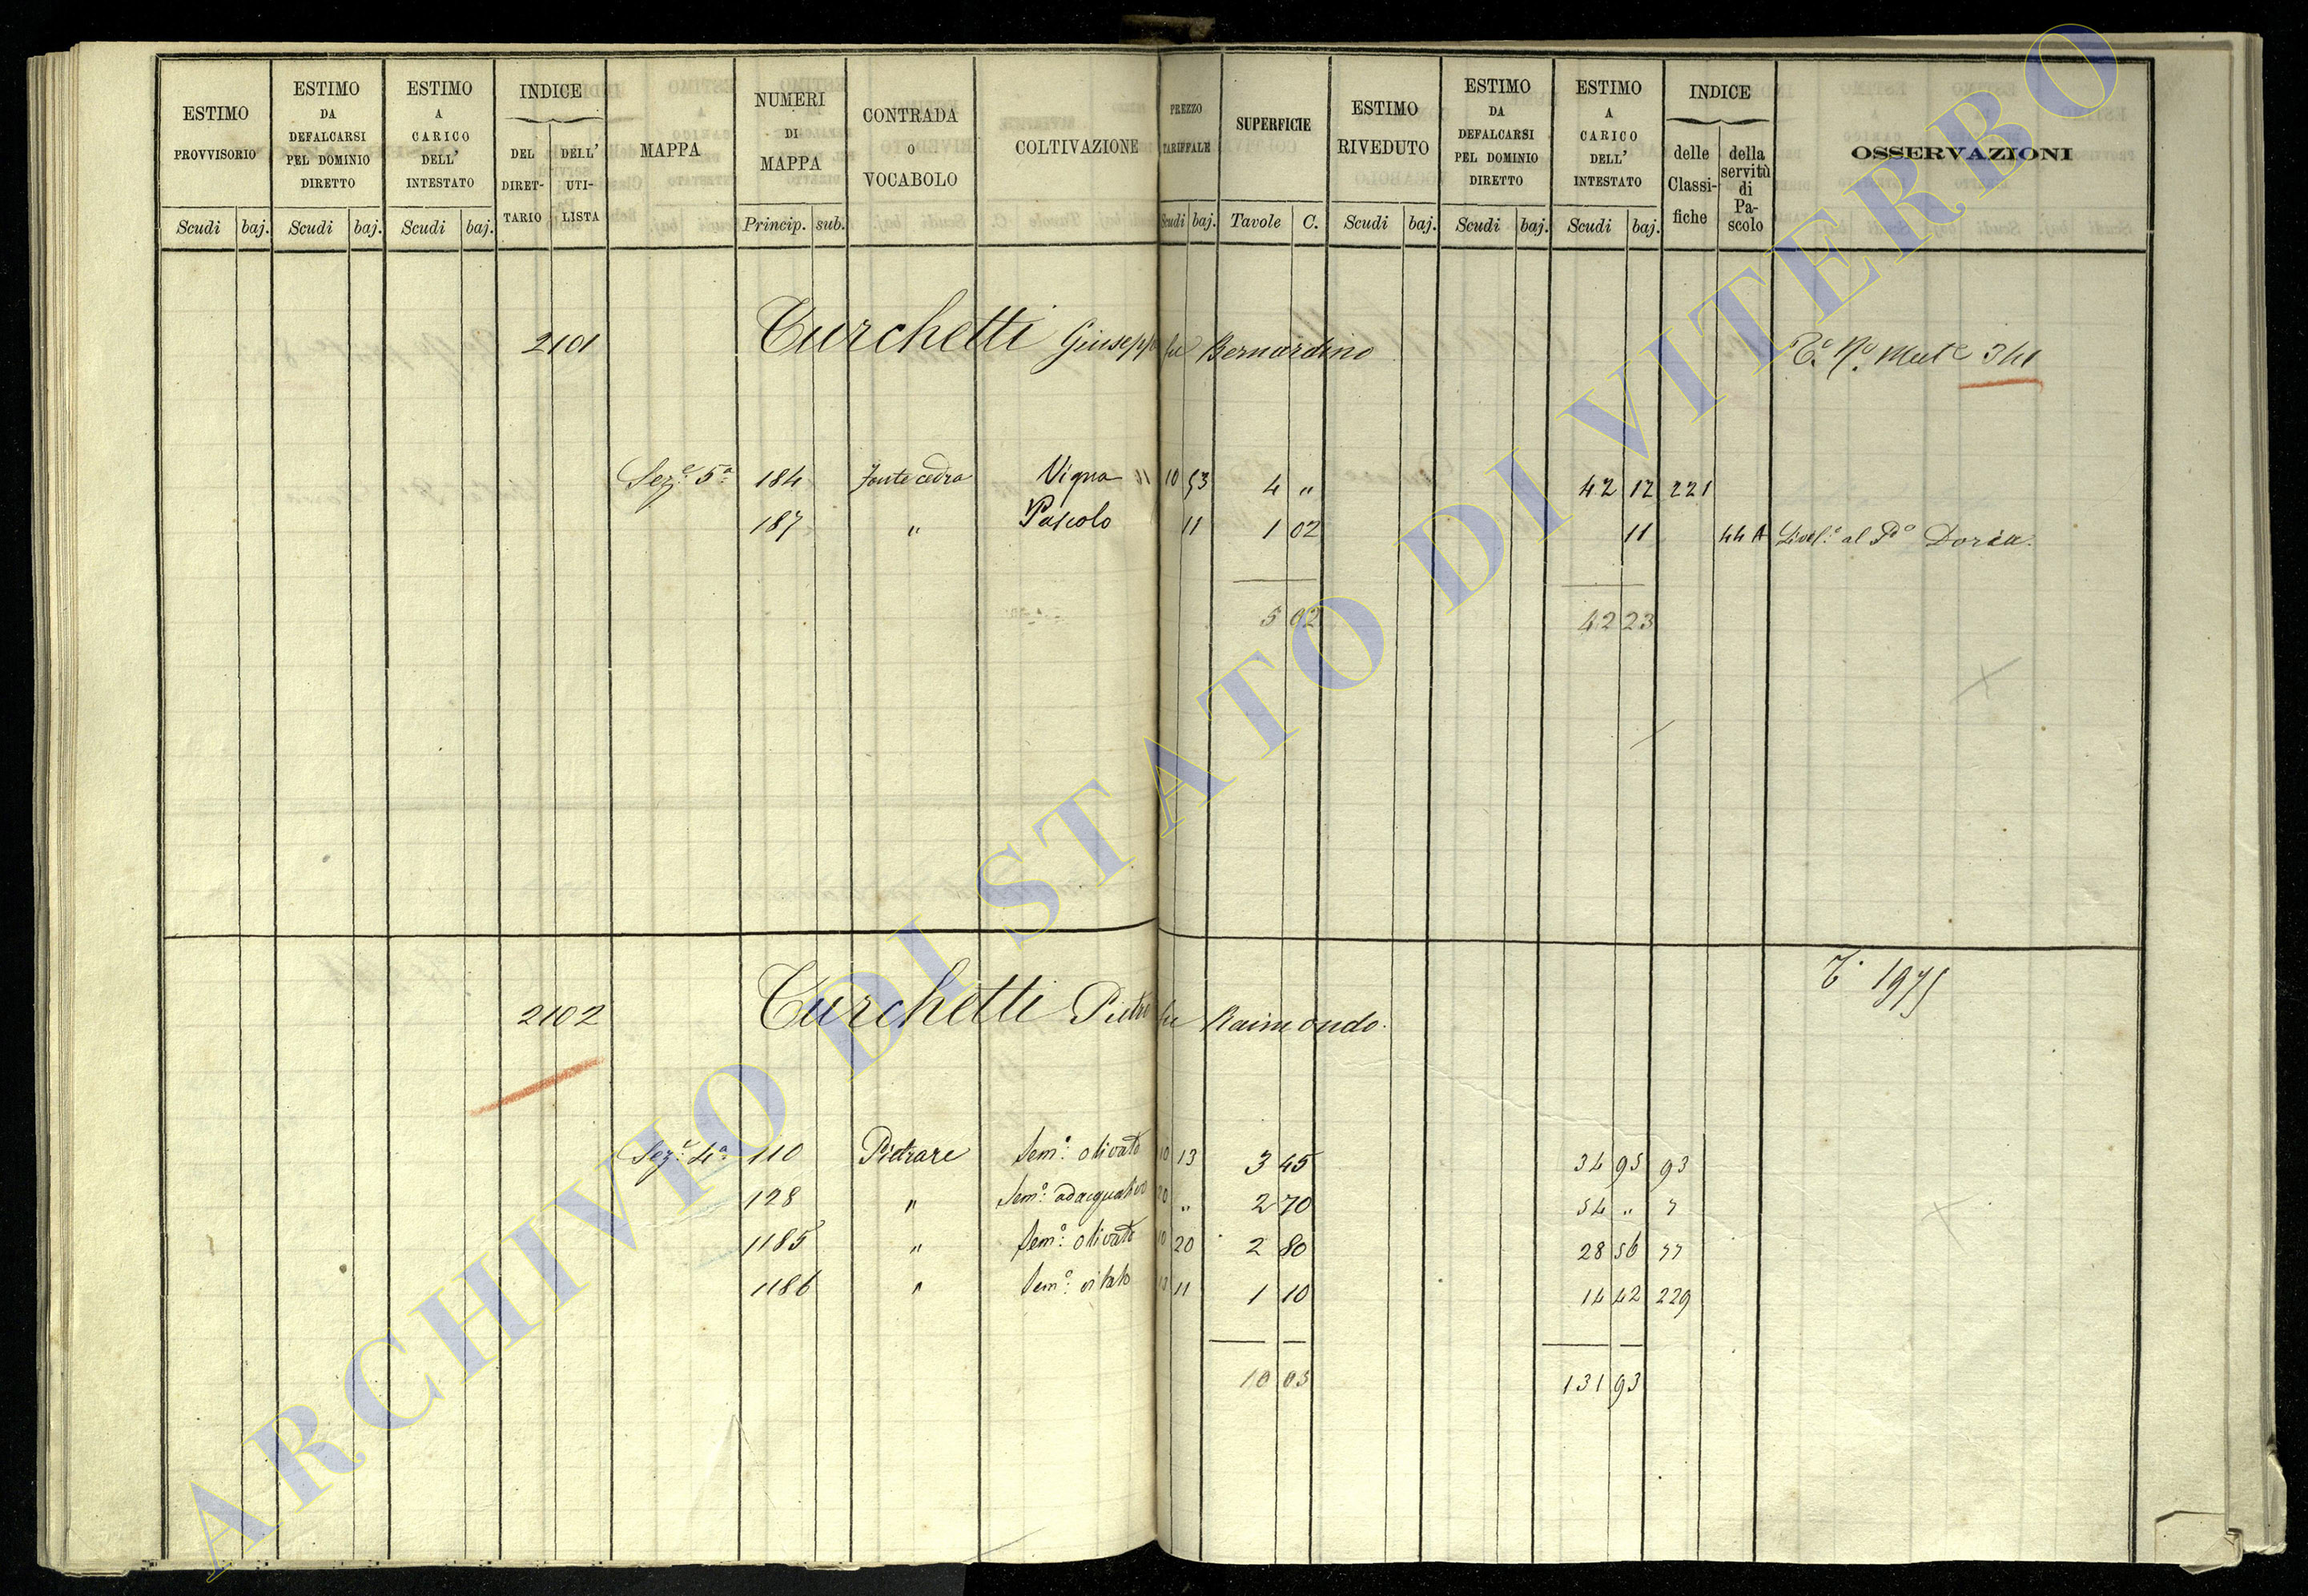 ESTIMO PROVVISORIO Scudi baj.
ESTIMO DA DEFALCARSI PEL DOMINIO DIRETTO Scudi baj.
ESTIMO A CARICO DELL' INTESTATO Scudi baj.
INDICE DEL DIRET-TARIO DELL' UTI-LISTA
MAPPA
NUMERI DI MAPPA Princip. sub.
CONTRADA O VOCABOLO
COLTIVAZIONE
PREZZO TARIFFALE Scudi baj.
SUPERFICIE Tavole C.
ESTIMO RIVEDUTO Scudi baj.
ESTIMO DA DEFALCARSI PEL DOMINIO DIRETTO Scudi baj.
ESTIMO A CARICO DELL' INTESTATO Scudi baj.
INDICE delle Classi-fiche della servitù di Pa-scolo
OSSERVAZIONI
2101 Turchetti Giuseppe fu Bernardino 341
Sez.e 5a 184 Fonte cedro Vigna 10 53 4 " 42 12 221
187 " Pascolo 11 1 02 11 44 A Livel.o al Pe Doria.
5 02 42 23
2102 Turchetti Pietro fu Raimondo. 1975
Sez.e 4a 110 Pietrare Sem.o olivato 10 13 3 45 34 95 93
128 " Sem.o adacquativo 20 " 2 70 54 "
1185 " Sem.o olivato 10 20 2 80 28 56
1186 " Sem.o vitato 13 11 1 10 14 42 229
10 03 131 93
ARCHIVIO DI STATO DI VITERBO